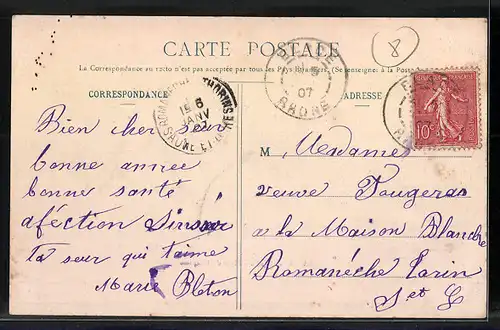 CARTE POSTALE
8
La Correspondance au recto n'est pas acceptée par tous les Pays Etrangers. (Se renseigner à la Poste)
CORRESPONDANCE
ADRESSE
RHONE
07
ROMANECHE-THORINS
15 6
JANV
07
SAONE ET L
FRANÇAISE
10c
Bien cher seur
bonne année
bonne santé
aféction Sinsair
ta seur qui t'aime
Marie Bleton
M Mesdames
veuve Fougeras
a la Maison Blanche
Romanéche Torin
S et L